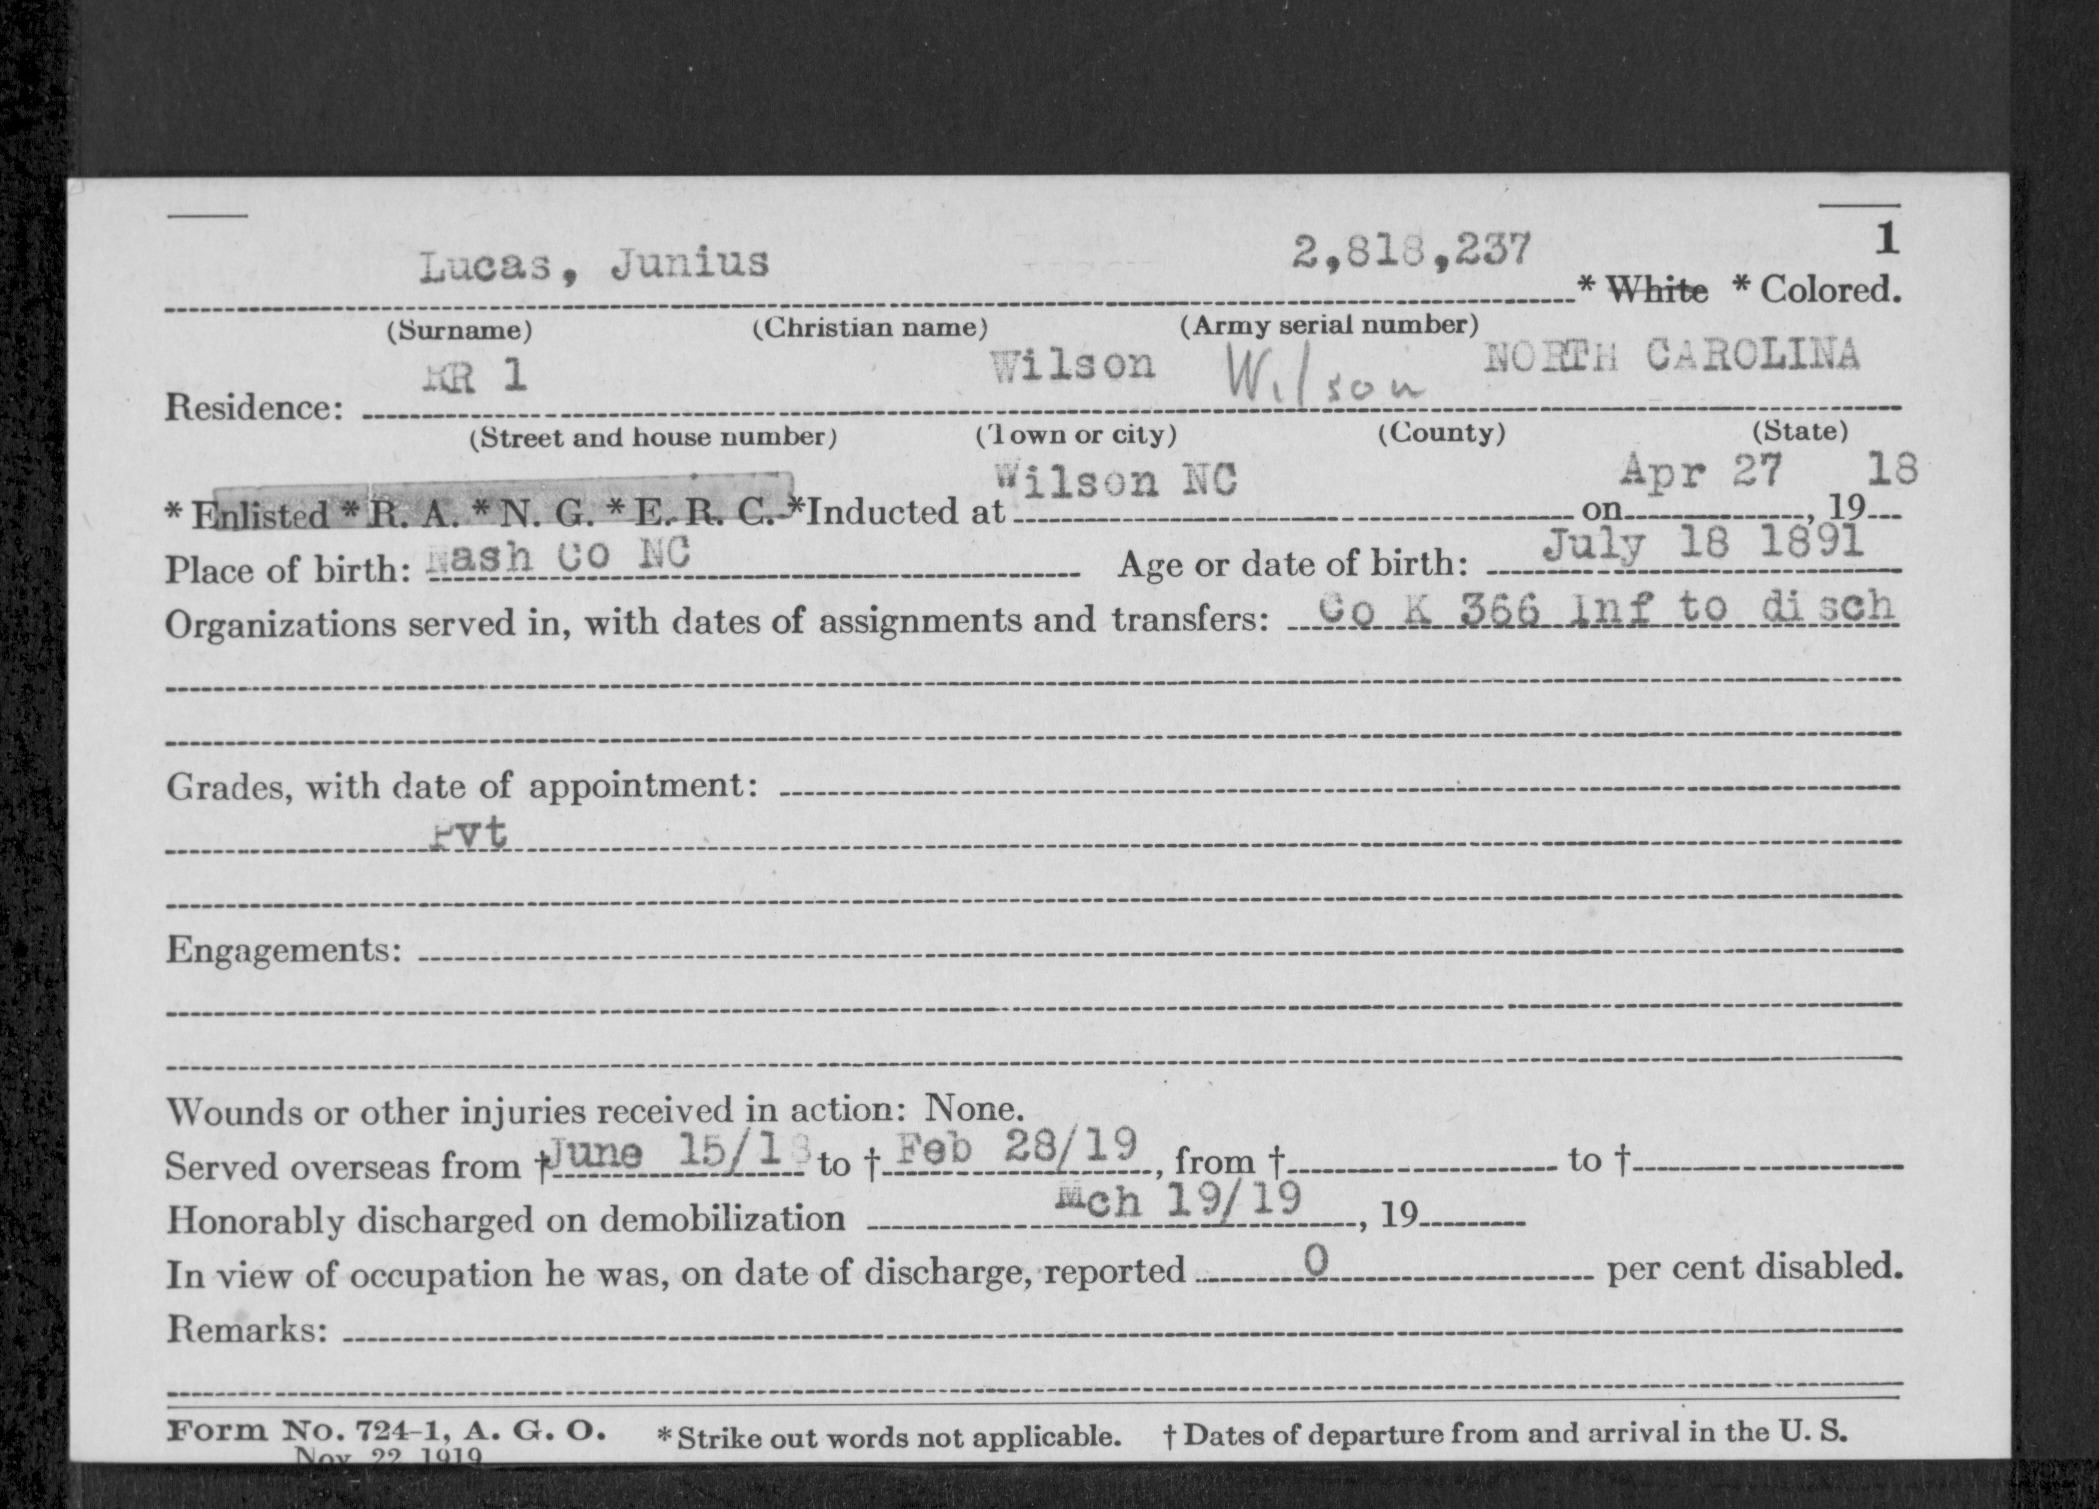 1
Lucas, Junius 2,818,237 * White * Colored.
(Surname) (Christian name) (Army serial number)
Residence: RR 1 Wilson Wilson NORTH CAROLINA
(Street and house number) (Town or city) (County) (State)
* Enlisted * R. A. * N. G. * E. R. C. *Inducted at Wilson NC on Apr 27, 1918
Place of birth: Nash Co NC Age or date of birth: July 18 1891
Organizations served in, with dates of assignments and transfers: Co K 366 Inf to disch
Grades, with date of appointment:
Pvt
Engagements:
Wounds or other injuries received in action: None.
Served overseas from † June 15/18 to † Feb 28/19, from † to †
Honorably discharged on demobilization Mch 19/19, 19
In view of occupation he was, on date of discharge, reported 0 per cent disabled.
Remarks:
Form No. 724-1, A. G. O. * Strike out words not applicable. † Dates of departure from and arrival in the U. S.
Nov 22 1919